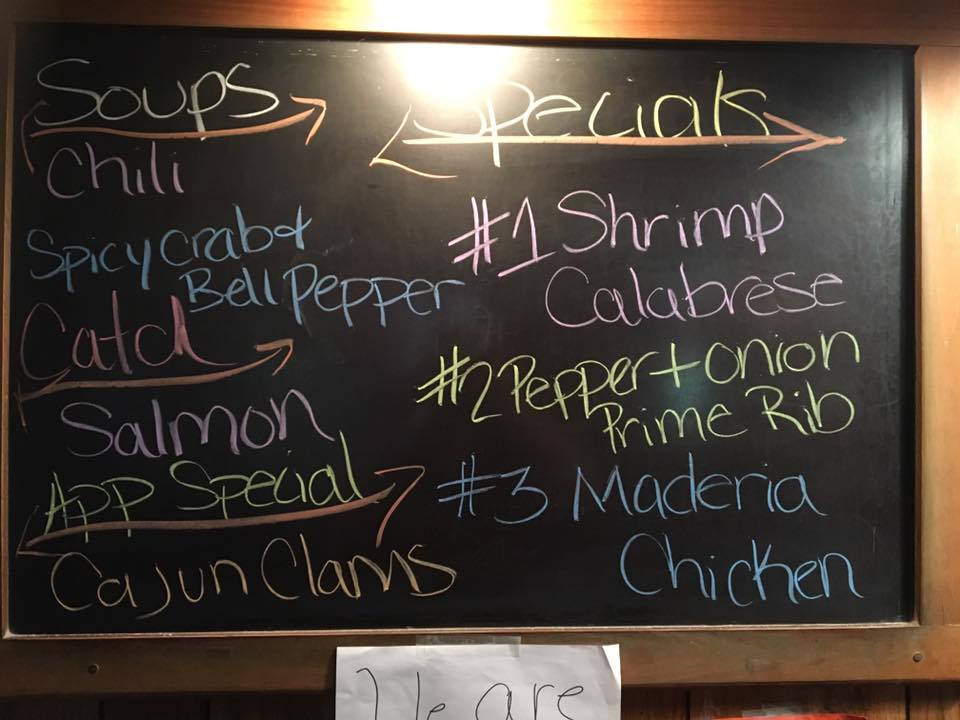 Soups
Chili
Spicy Crab +
Bell Pepper
Catch
Salmon
App Special
Cajun Clams
Specials
#1 Shrimp
Calabrese
#2 Pepper + Onion
Prime Rib
#3 Maderia
Chicken
We are